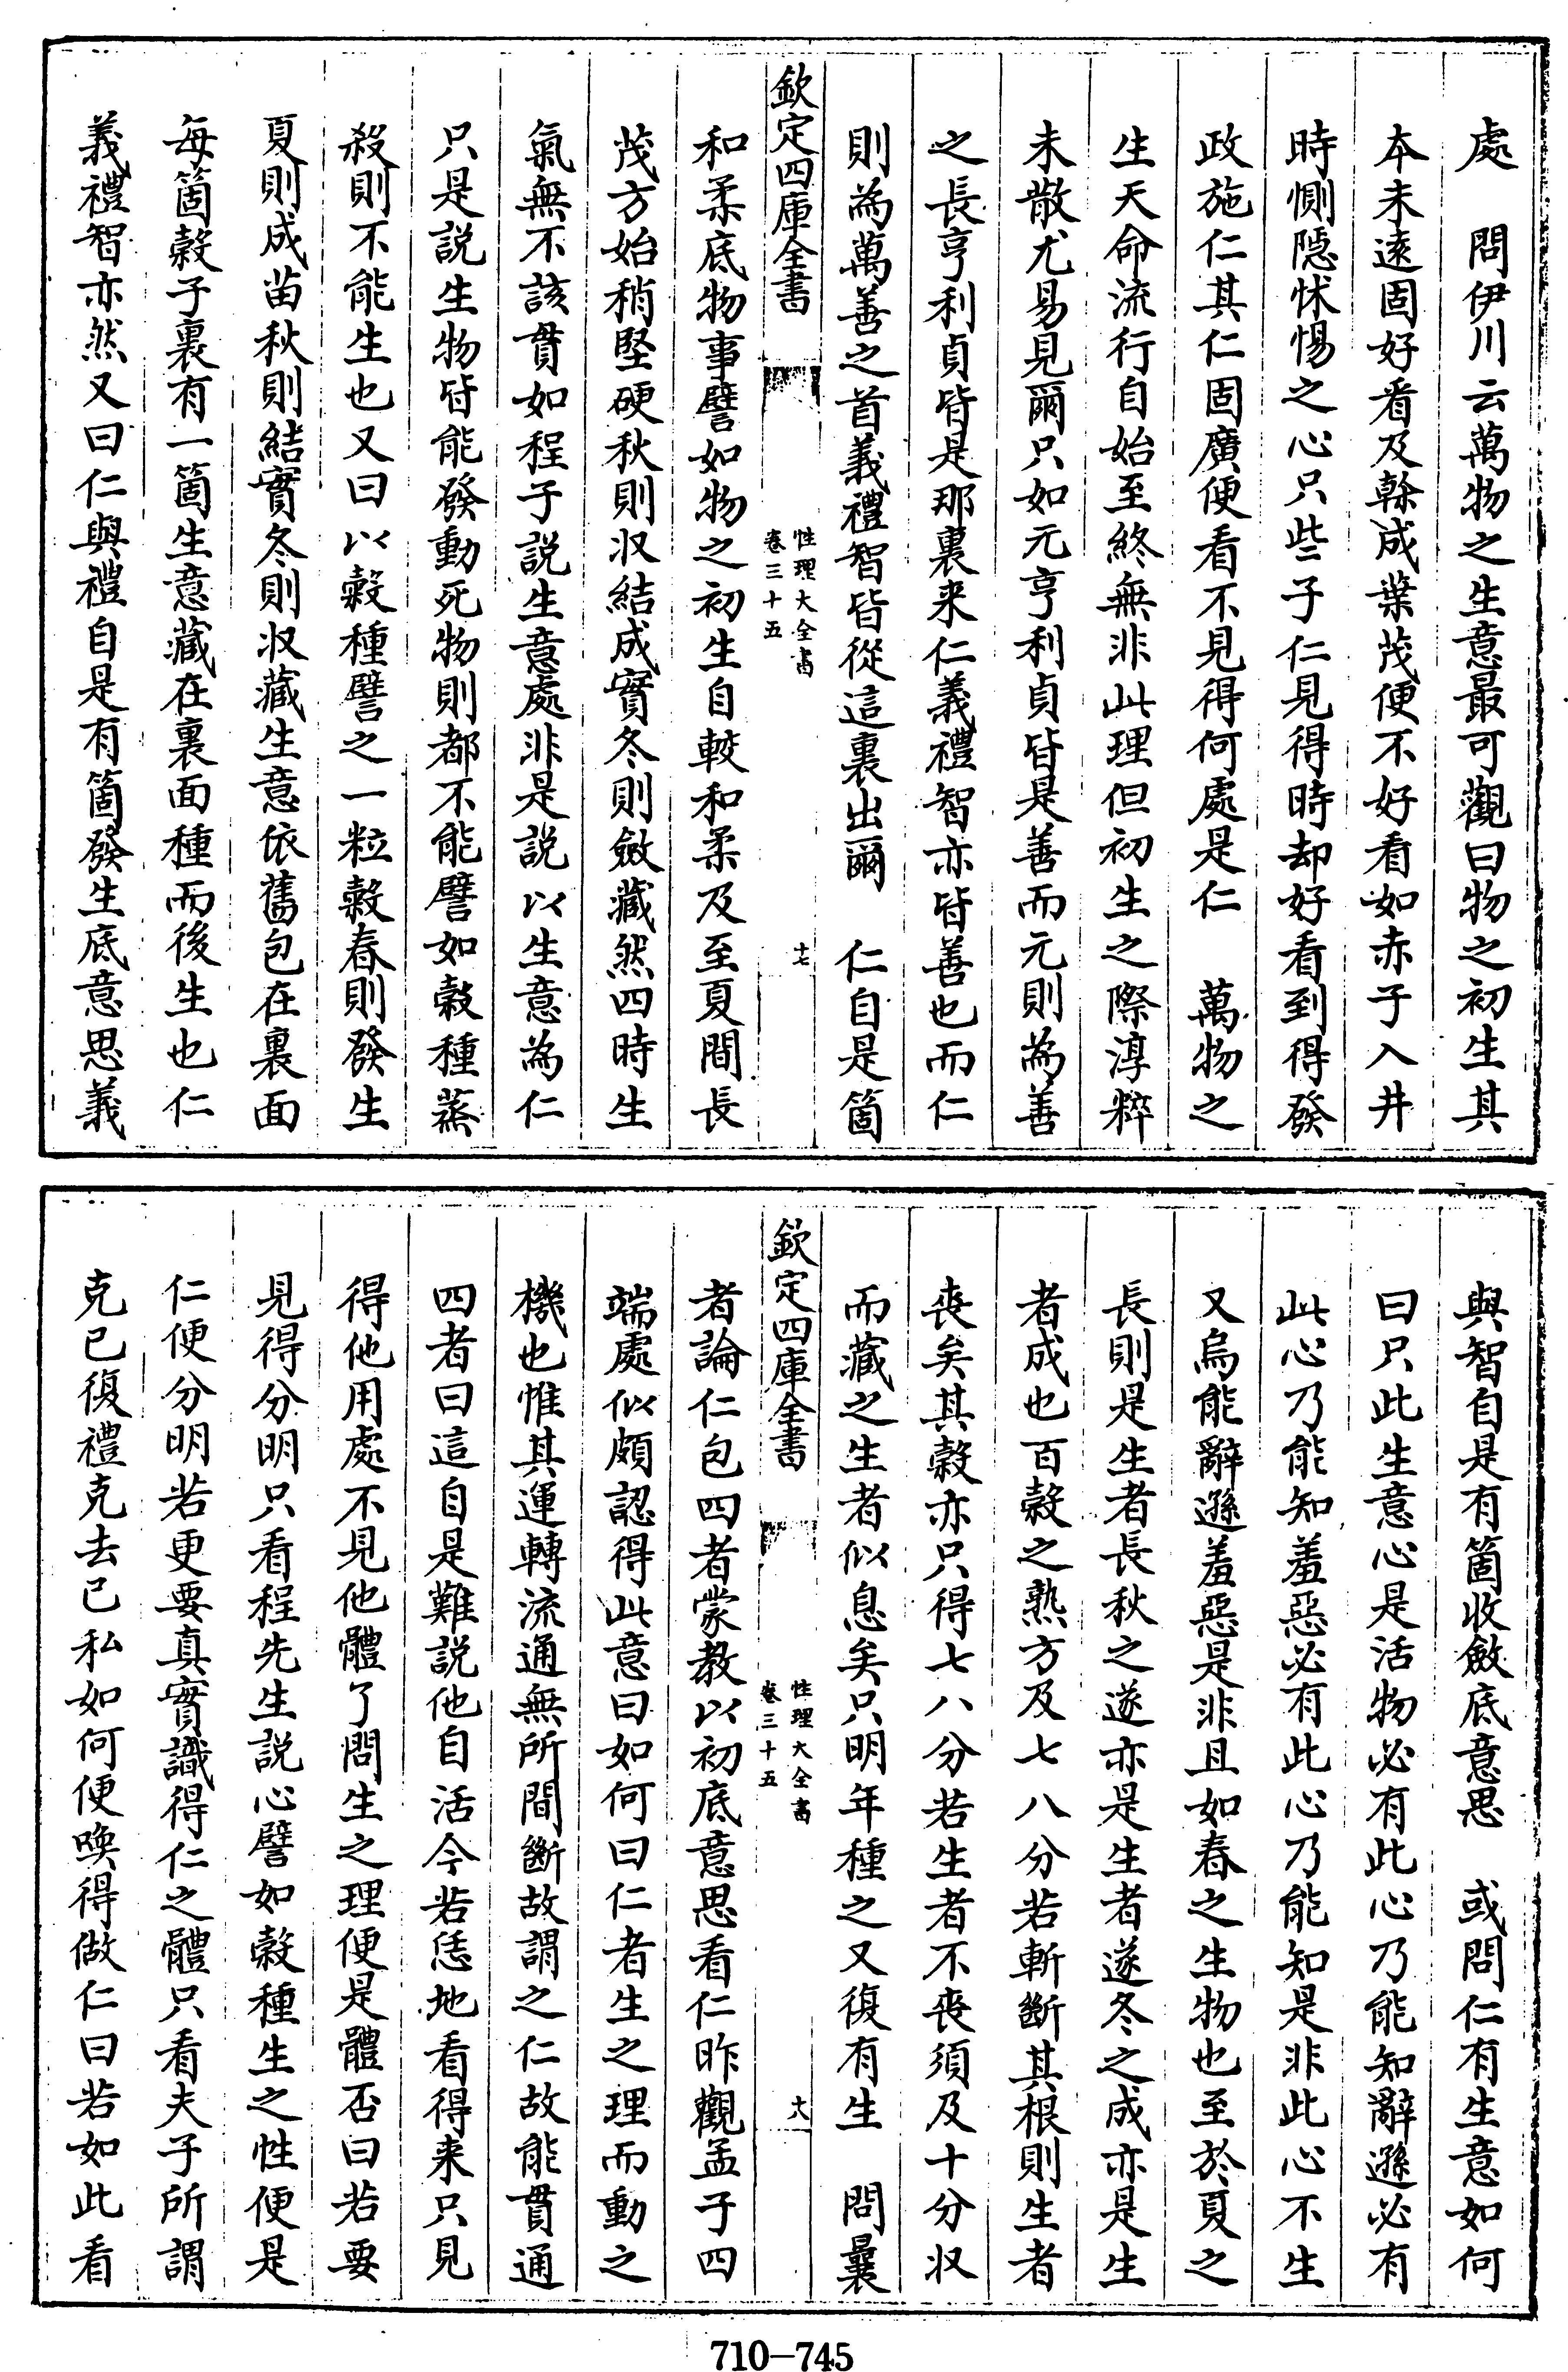 處　問伊川云萬物之生意最可觀曰物之初生其
本未遠固好看及榦成葉茂便不好看如赤子入井
時惻隠怵惕之心只些子仁見得時却好看到得發
政施仁其仁固廣便看不見得何處是仁　萬物之
生天命流行自始至終無非此理但初生之際淳粹
未散尤易見爾只如元亨利貞皆是善而元則為善
之長亨利貞皆是那裏来仁義禮智亦皆善也而仁
則為萬善之首義禮智皆從這裏出爾　仁自是箇
欽定四庫全書
性理大全書
卷三十五
十七
和柔底物事譬如物之初生自較和柔及至夏間長
茂方始稍堅硬秋則収結成實冬則斂藏然四時生
氣無不該貫如程子説生意處非是説以生意為仁
只是説生物皆能發動死物則都不能譬如穀種蒸
殺則不能生也又曰以穀種譬之一粒穀春則發生
夏則成苗秋則結實冬則収藏生意依舊包在裏面
每箇穀子裏有一箇生意藏在裏面種而後生也仁
義禮智亦然又曰仁與禮自是有箇發生底意思義
與智自是有箇收斂底意思　或問仁有生意如何
曰只此生意心是活物必有此心乃能知辭遜必有
此心乃能知羞惡必有此心乃能知是非此心不生
又烏能辭遜羞惡是非且如春之生物也至於夏之
長則是生者長秋之遂亦是生者遂冬之成亦是生
者成也百穀之熟方及七八分若斬斷其根則生者
喪矣其穀亦只得七八分若生者不喪須及十分収
而藏之生者似息矣只明年種之又復有生　問曩
欽定四庫全書
性理大全書
卷三十五
十八
者論仁包四者蒙教以初底意思看仁昨觀孟子四
端處似頗認得此意曰如何曰仁者生之理而動之
機也惟其運轉流通無所間斷故謂之仁故能貫通
四者曰這自是難説他自活今若恁地看得来只見
得他用處不見他體了問生之理便是體否曰若要
見得分明只看程先生説心譬如穀種生之性便是
仁便分明若更要真實識得仁之體只看夫子所謂
克已復禮克去已私如何便喚得做仁曰若如此看
710-745